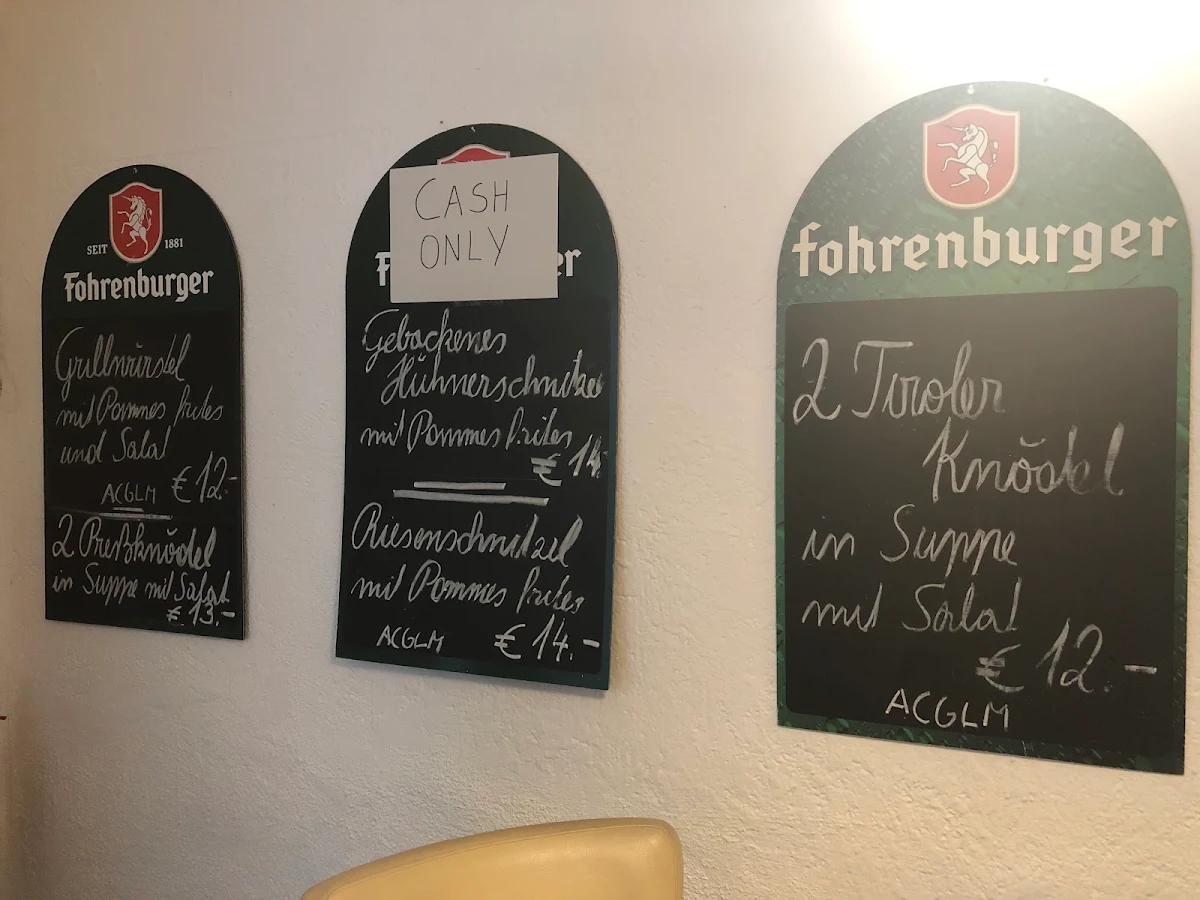 SEIT 1881
Fohrenburger
Grillwürstel
mit Pommes frites
und Salat
ACGLM € 12.-
2 Preßknödel
in Suppe mit Salat
€ 13.-
CASH
ONLY
Gebackenes
Hühnerschnitzel
mit Pommes frites
€ 14.
Riesenschnitzel
mit Pommes frites
ACGLM € 14.-
fohrenburger
2 Tiroler
Knödel
in Suppe
mit Salat
€ 12.-
ACGLM